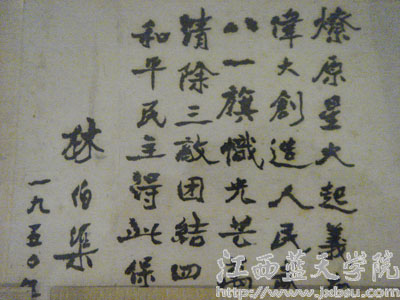 燎原星火起義
偉大創造人民
八一旗幟光芒
清除三敵团結四
和平民主得此保
林伯渠
一九五〇年
江西蓝天学院
http://www.jxbsu.com